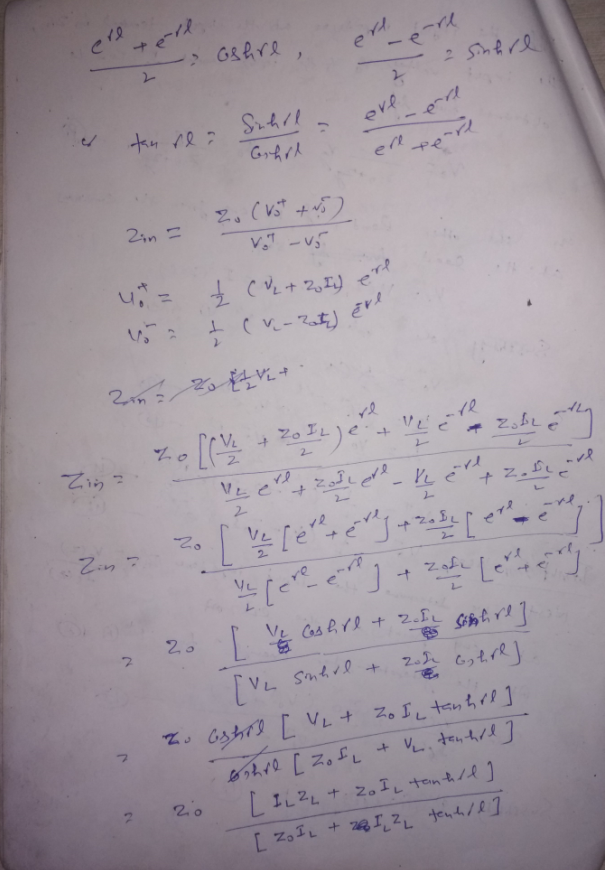 (e^{γl} + e^{-γl})/2 = coshγl , (e^{γl} - e^{-γl})/2 = sinhγl
& tan γl = Sinhγl/Coshγl = (e^{γl} - e^{-γl})/(e^{γl} + e^{-γl})
Zin = Z₀ (V₀⁺ + V₀⁻)/(V₀⁺ - V₀⁻)
V₀⁺ = 1/2 (V_L + Z₀I_L) e^{γl}
V₀⁻ = 1/2 (V_L - Z₀I_L) e^{-γl}
Zin = Z₀ [1/2 V_L +
Zin = Z₀ [(V_L/2 + Z₀I_L/2) e^{γl} + V_L/2 e^{-γl} - Z₀I_L/2 e^{-γl}] / V_L/2 e^{γl} + Z₀I_L/2 e^{γl} - V_L/2 e^{-γl} + Z₀I_L/2 e^{-γl}
Zin = Z₀ [ V_L/2 [e^{γl} + e^{-γl}] + Z₀I_L/2 [e^{γl} - e^{-γl}] ] / V_L/2 [e^{γl} - e^{-γl}] + Z₀I_L/2 [e^{γl} + e^{-γl}]
= Z₀ [ V_L Coshγl + Z₀I_L Sinhγl ] / [ V_L Sinhγl + Z₀I_L Coshγl ]
= Z₀ Coshγl [ V_L + Z₀ I_L tanhγl ] / Coshγl [ Z₀I_L + V_L tanhγl ]
= Z₀ [ I_L Z_L + Z₀ I_L tanhγl ] / [ Z₀I_L + I_L Z_L tanhγl ]